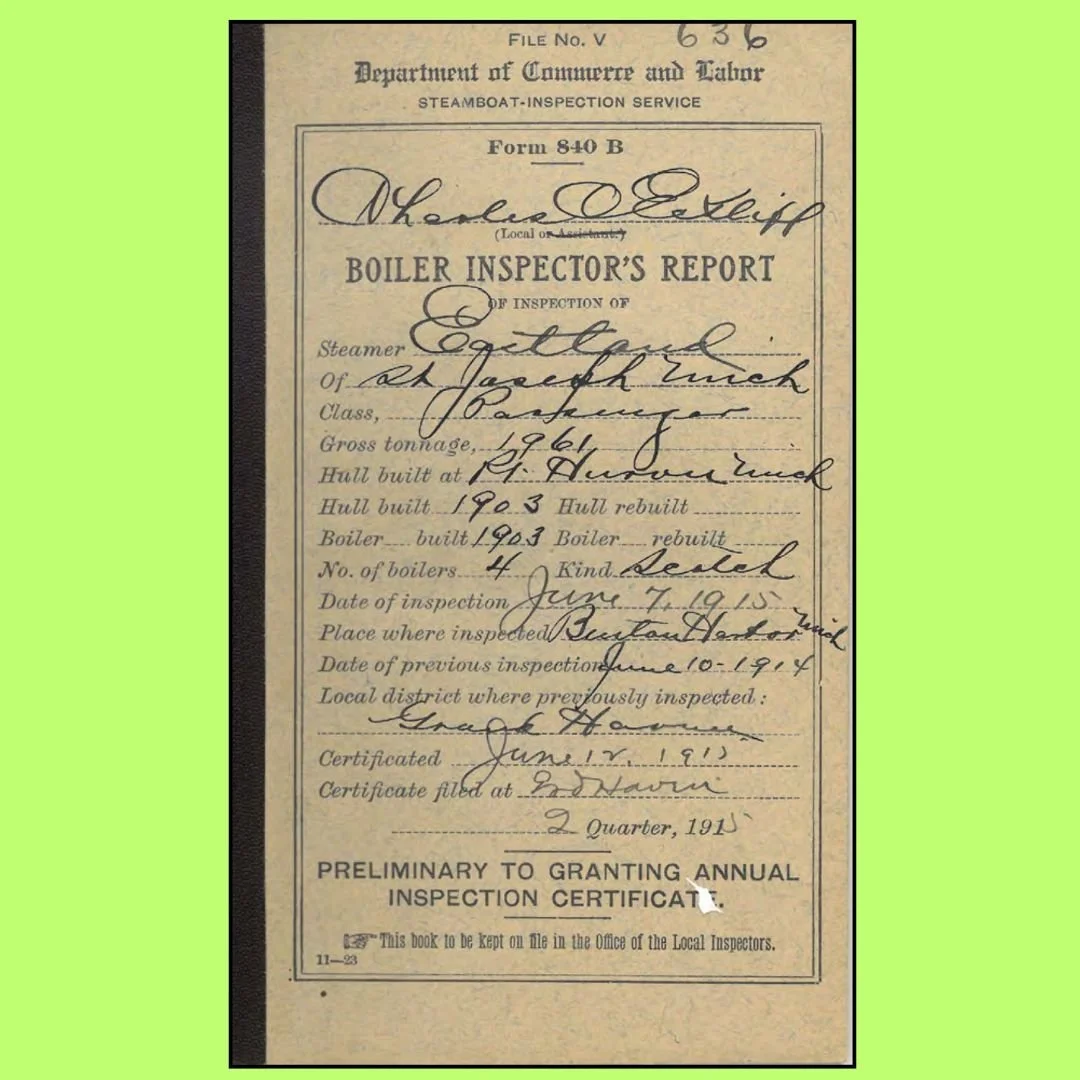 FILE No. V 636
Department of Commerce and Labor
STEAMBOAT-INSPECTION SERVICE
Form 840 B
Charles C Eckliff
(Local or Assistant.)
BOILER INSPECTOR'S REPORT
OF INSPECTION OF
Steamer Eastland
Of St Joseph Mich
Class, Passenger
Gross tonnage, 1961
Hull built at Pt. Huron Mich
Hull built 1903 Hull rebuilt
Boiler built 1903 Boiler rebuilt
No. of boilers 4 Kind Scotch
Date of inspection June 7, 1915
Place where inspected Benton Harbor Mich
Date of previous inspection June 10-1914
Local district where previously inspected:
Grand Haven
Certificated June 12, 1915
Certificate filed at Grd Haven
2 Quarter, 1915
PRELIMINARY TO GRANTING ANNUAL
INSPECTION CERTIFICATE.
This book to be kept on file in the Office of the Local Inspectors.
11—23